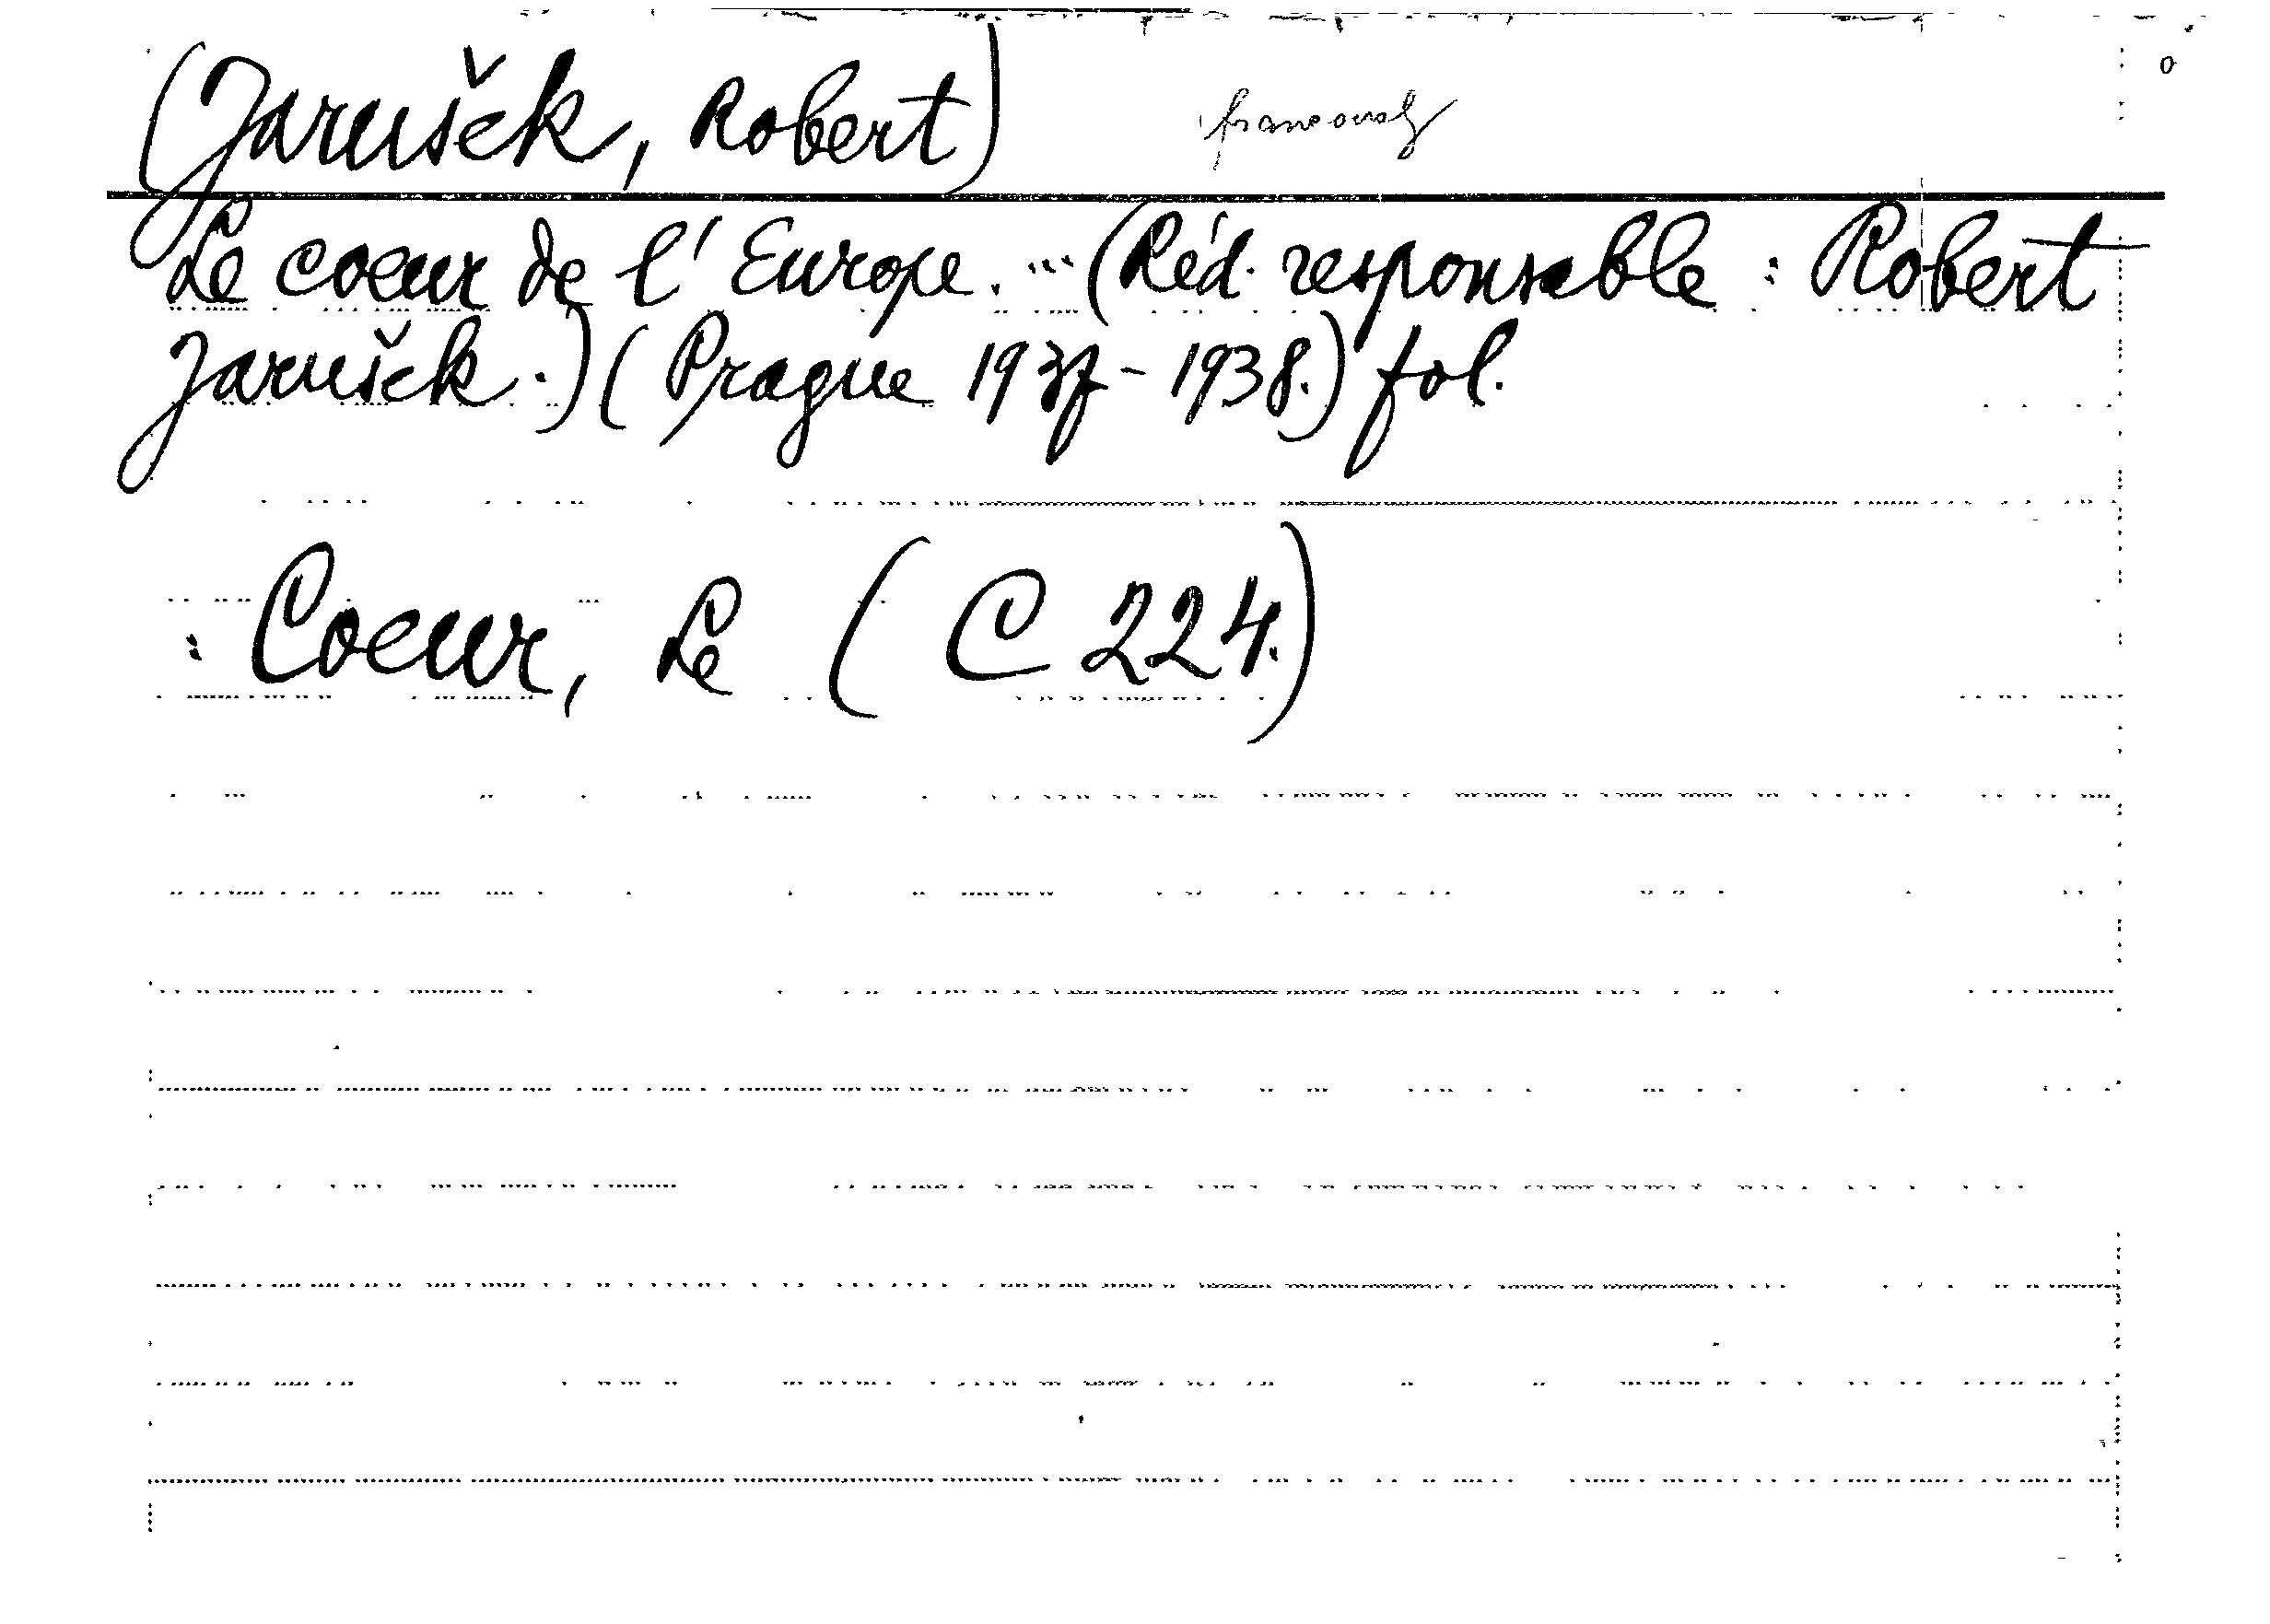 (Jarušek, Robert) francouzsky
Le coeur de l'Europe. ... (Réd. responsable : Robert
Jarušek.) (Prague 1937-1938.) fol.
: Coeur, Le (C 224.)